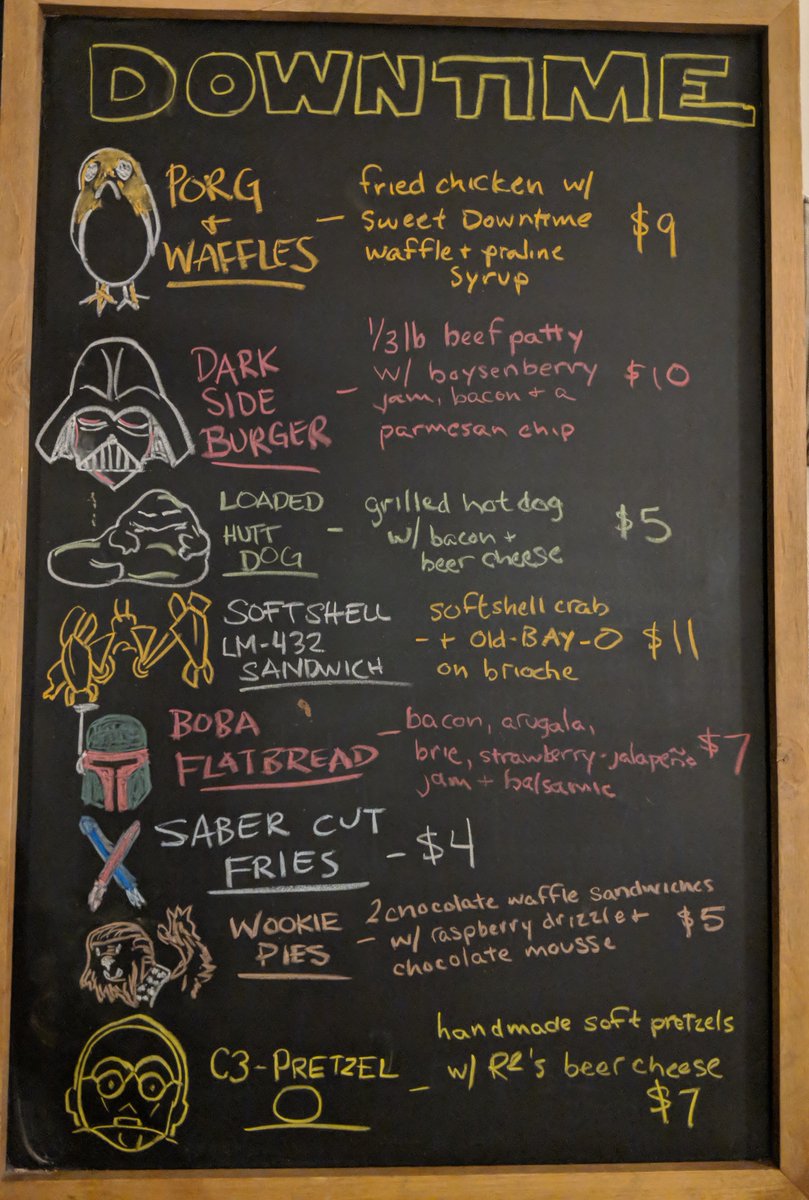 DOWNTIME
PORG
+
WAFFLES
- fried chicken w/
Sweet Downtime
waffle + praline
syrup
$9
DARK
SIDE
BURGER
- 1/3 lb beef patty
w/ boysenberry
jam, bacon + a
parmesan chip
$10
LOADED
HUTT
DOG
- grilled hot dog
w/ bacon +
beer cheese
$5
SOFTSHELL
LM-432
SANDWICH
softshell crab
- + Old-BAY-O
on brioche
$11
BOBA
FLATBREAD
- bacon, arugala,
brie, strawberry-jalapeño
jam + balsamic
$7
SABER CUT
FRIES - $4
WOOKIE
PIES
2 chocolate waffle sandwiches
- w/ raspberry drizzle +
chocolate mousse
$5
C3-PRETZEL
O
handmade soft pretzels
- w/ R2's beer cheese
$7